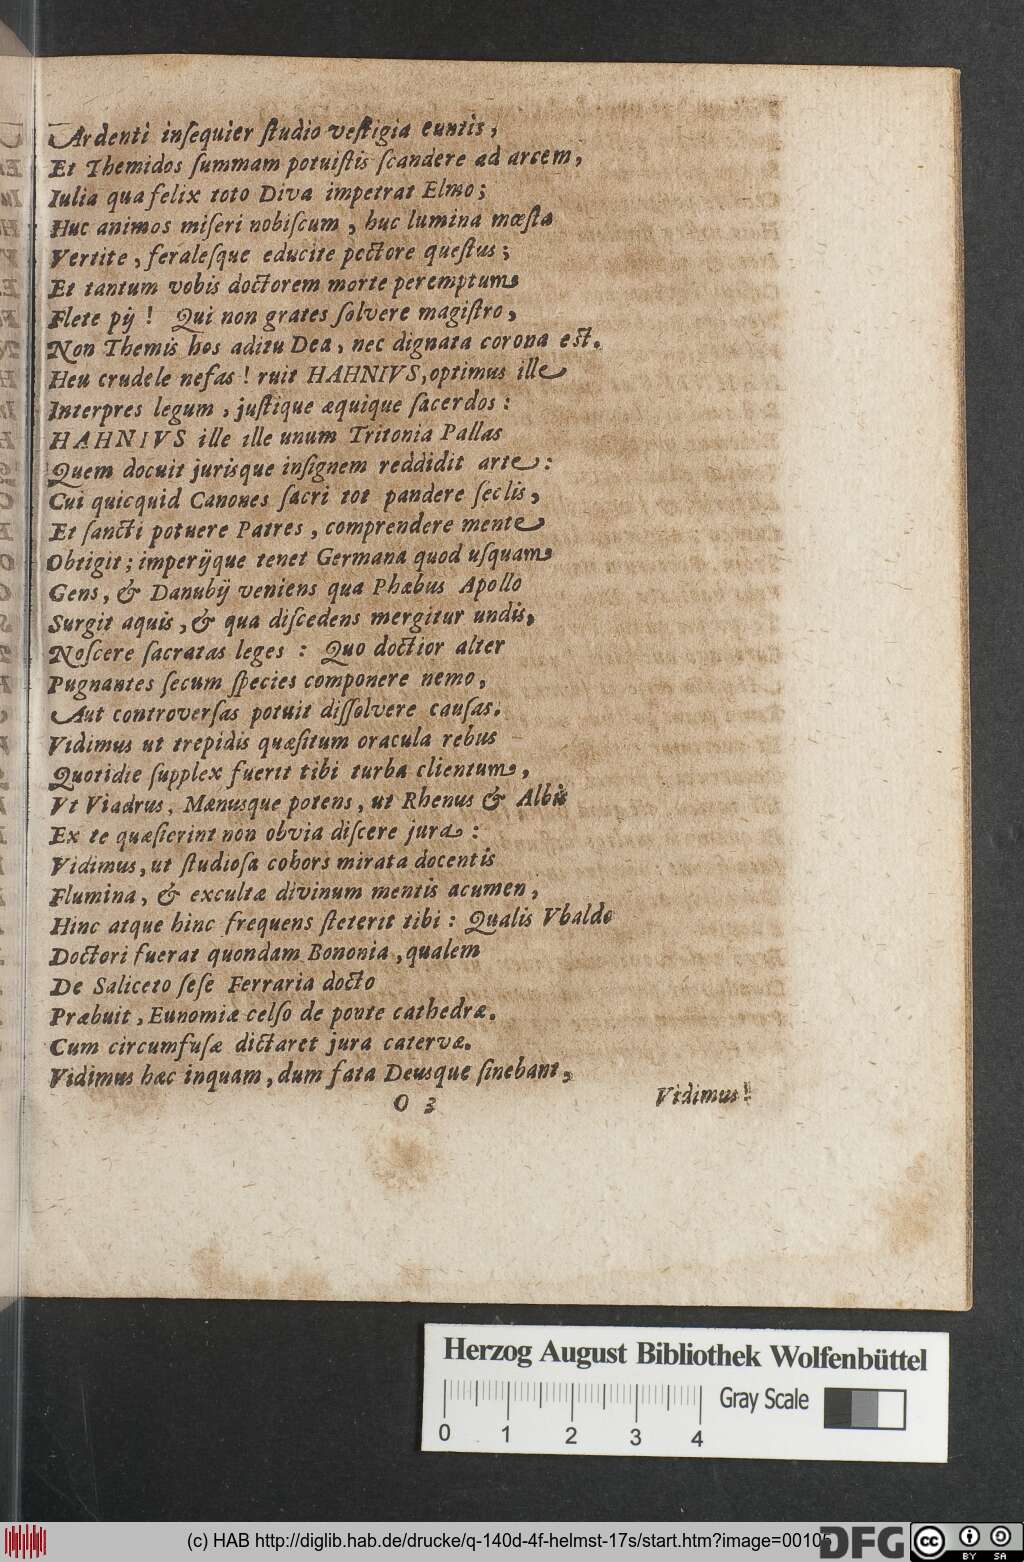 Ardenti inſequier ſtudio veſtigia euntis,
Et Themidos ſummam potuiſtis ſcandere ad arcem,
Iulia qua felix toto Diva impetrat Elmo;
Huc animos miſeri nobiſcum, huc lumina mœſta
Vertite, feraleſque educite pectore queſtus;
Et tantum vobis doctorem morte peremptum
Flete pij! Qui non grates ſolvere magiſtro,
Non Themis hos aditu Dea, nec dignata corona eſt.
Heu crudele nefas! ruit HAHNIVS, optimus ille
Interpres legum, juſtique æquique ſacerdos:
HAHNIVS ille ille unum Tritonia Pallas
Quem docuit jurisque inſignem reddidit arte:
Cui quicquid Canones ſacri tot pandere ſeclis,
Et ſancti potuere Patres, comprendere mente
Obtigit; imperijque tenet Germana quod uſquam
Gens, & Danubij veniens qua Phæbus Apollo
Surgit aquis, & qua diſcedens mergitur undis,
Noſcere ſacratas leges: Quo doctior alter
Pugnantes ſecum ſpecies componere nemo,
Aut controverſas potuit diſſolvere cauſas.
Vidimus ut trepidis quæſitum oracula rebus
Quotidie ſupplex fuerit tibi turba clientum,
Vt Viadrus, Mænusque potens, ut Rhenus & Albis
Ex te quæſierint non obvia diſcere jura:
Vidimus, ut ſtudioſa cohors mirata docentis
Flumina, & excultæ divinum mentis acumen,
Hinc atque hinc frequens ſteterit tibi: Qualis Vbaldo
Doctori fuerat quondam Bononia, qualem
De Saliceto ſeſe Ferraria docto
Præbuit, Eunomiæ celſo de ponte cathedræ.
Cum circumfuſæ dictaret jura catervæ.
Vidimus hæc inquam, dum fata Deusque ſinebant,
O 3 Vidimus!
Herzog August Bibliothek Wolfenbüttel
Gray Scale
0 1 2 3 4
(c) HAB http://diglib.hab.de/drucke/q-140d-4f-helmst-17s/start.htm?image=00105
DFG
cc BY SA